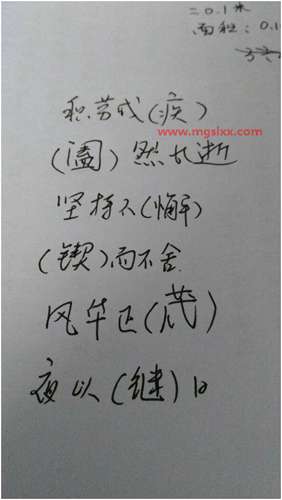 =0.1米
面积:0.1
积劳成(疾)
www.mgsixx.com
(溘)然长逝
坚持不(懈)
(锲)而不舍
风华正(茂)
夜以(继)日